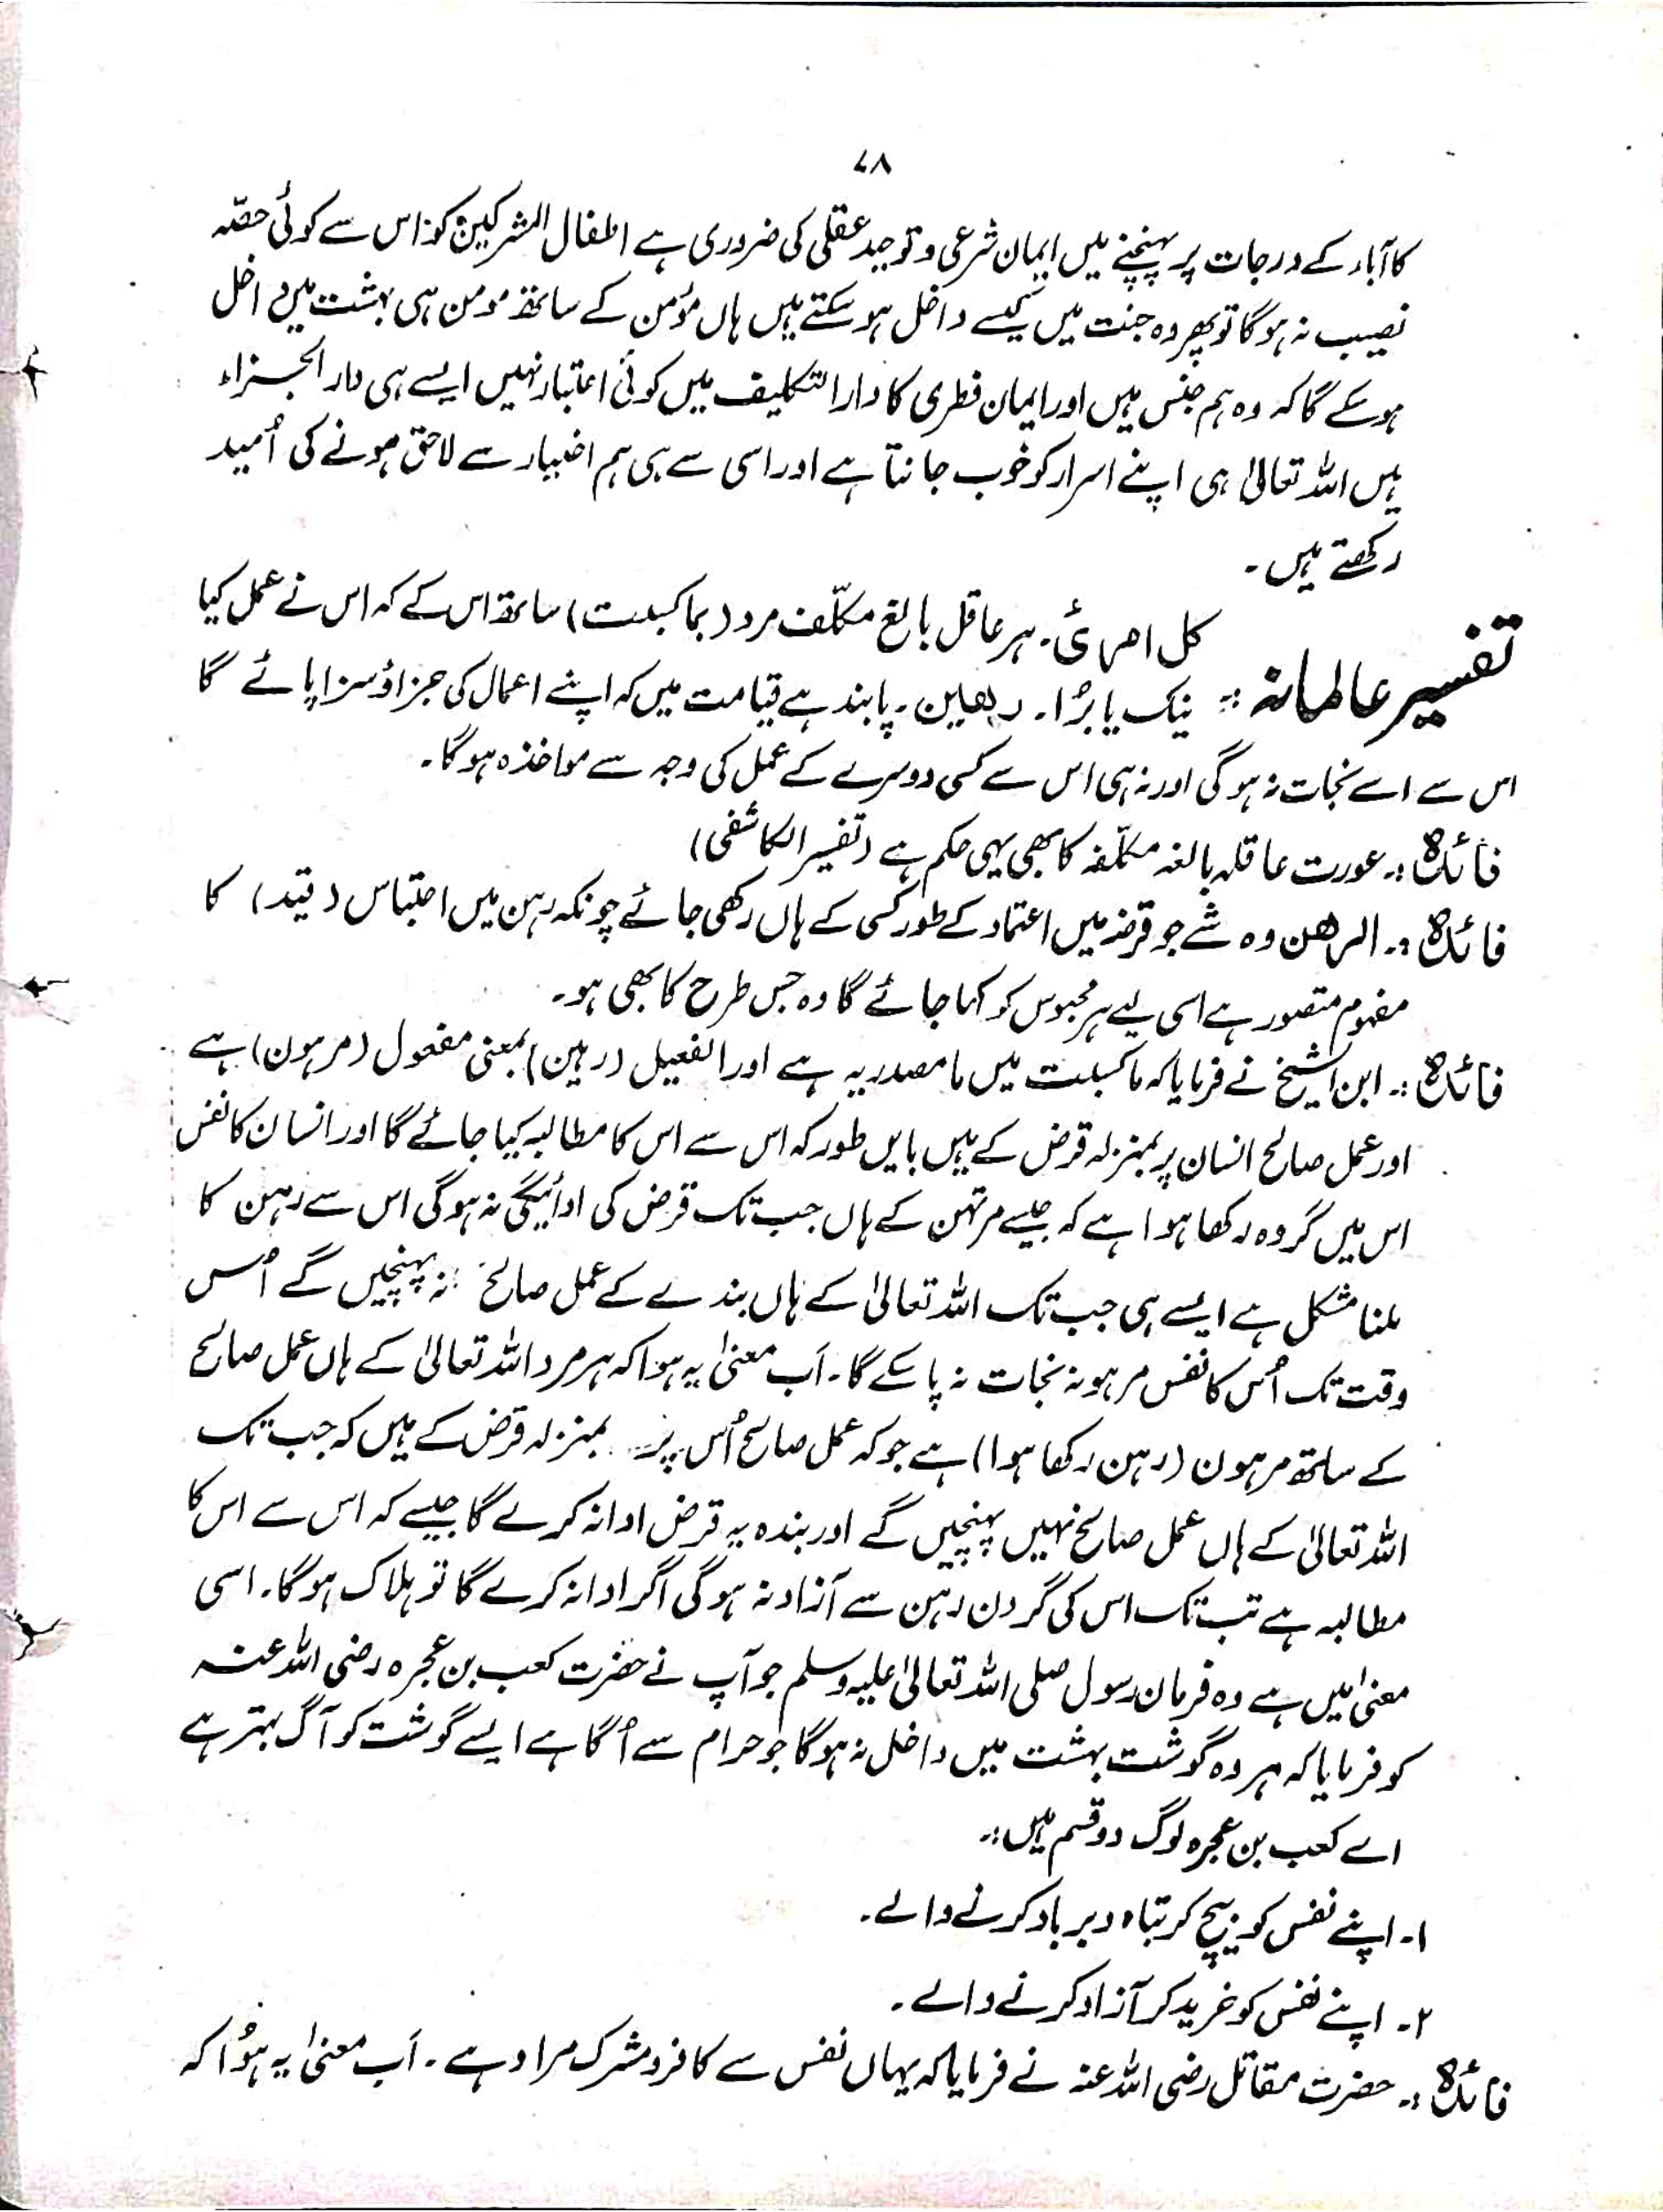 ۷۸
کا آباء کے درجات پر پہنچنے میں ایمان شرعی و توحید عقلی کی ضروری ہے اطفال المشرکین کو نہ اس سے کوئی حصّہ
نصیب نہ ہو گا تو پھر وہ جنت میں کیسے داخل ہو سکتے ہیں ہاں مؤمن کے ساتھ مومن ہی بہشت میں داخل
ہو سکے گا کہ وہ ہم جنس ہیں اور ایمان فطری کا دار التکلیف میں کوئی اعتبار نہیں ایسے ہی دار الجزاء
میں اللہ تعالیٰ ہی اپنے اسرار کو خوب جانتا ہے اور اسی سے ہی ہم اخیار سے لاحق ہونے کی اُمید
رکھتے ہیں۔
تفسیر عالمانہ :: کل امرئ۔ ہر عاقل بالغ مکلّف مرد (بما کسبت) ساتھ اس کے کہ اس نے عمل کیا
نیک یا بُرا۔ رھین۔ پابند ہے قیامت میں کہ اپنے اعمال کی جزاؤ سزا پائے گا
اس سے اسے نجات نہ ہو گی اور نہ ہی اس سے کسی دوسرے کے عمل کی وجہ سے مواخذہ ہو گا۔
فائدہ :۔ عورت عاقلہ بالغہ مکلّفہ کا بھی یہی حکم ہے (تفسیر الکاشفی)
فائدہ :۔ الرھن وہ شے جو قرضہ میں اعتماد کے طور کسی کے ہاں رکھی جائے چونکہ رہن میں احتباس (قید) کا
مفہوم متصور ہے اسی لیے ہر محبوس کو کہا جائے گا وہ جس طرح کا بھی ہو۔
فائدہ :۔ ابن الشیخ نے فرمایا کہ ما کسبت میں ما مصدریہ ہے اور الفعیل (رہین) بمعنی مفعول (مرہون) ہے
اور عمل صالح انسان پر بمنزلہ قرض کے ہیں بایں طور کہ اس سے اس کا مطالبہ کیا جائے گا اور انسان کا نفس
اس میں گروہ رکھا ہوا ہے کہ جیسے مرتہن کے ہاں جب تک قرض کی ادائیگی نہ ہو گی اس سے رہن کا
ملنا مشکل ہے ایسے ہی جب تک اللہ تعالیٰ کے ہاں بندے کے عمل صالح نہ پہنچیں گے اُس
وقت تک اُس کا نفس مرہونہ نجات نہ پا سکے گا۔ اَب معنیٰ یہ ہوا کہ ہر مرد اللہ تعالیٰ کے ہاں عمل صالح
کے ساتھ مرہون (رہن رکھا ہوا) ہے جو کہ عمل صالح اُس پر بمنزلہ قرض کے ہیں کہ جب تک
اللہ تعالیٰ کے ہاں عمل صالح نہیں پہنچیں گے اور بندہ یہ قرض ادا نہ کرے گا جیسے کہ اس سے اس کا
مطالبہ ہے تب تک اس کی گردن رہن سے آزاد نہ ہو گی اگر ادا نہ کرے گا تو ہلاک ہو گا۔ اسی
معنیٰ میں ہے وہ فرمان رسول صلی اللہ تعالیٰ علیہ وسلم جو آپ نے حضرت کعب بن عجرہ رضی اللہ عنہ
کو فرمایا کہ ہر وہ گوشت بہشت میں داخل نہ ہو گا جو حرام سے اُگا ہے ایسے گوشت کو آگ بہتر ہے
اے کعب بن عجرہ لوگ دو قسم ہیں :۔
۱۔ اپنے نفس کو بیچ کر تباہ و برباد کرنے والے۔
۲۔ اپنے نفس کو خرید کر آزاد کرنے والے۔
فائدہ :۔ حضرت مقاتل رضی اللہ عنہ نے فرمایا کہ یہاں نفس سے کافر و مشرک مراد ہے۔ اَب معنیٰ یہ ہُوا کہ